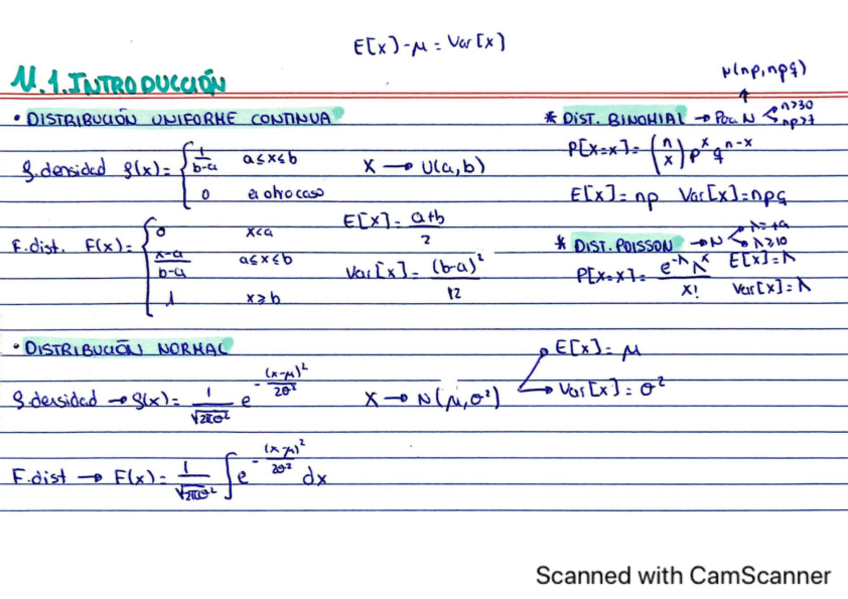 E[x]-μ = Var[x]
U.1. INTRODUCCIÓN
N(np, npq)
• DISTRIBUCIÓN UNIFORME CONTINUA
* DIST. BINOMIAL → N n>30 np>7
f. densidad f(x) = { 1/(b-a) a≤x≤b
0 en otro caso
X → U(a,b)
P[X=x] = (n x) p^x q^(n-x)
E[X] = np Var[X] = npq
F. dist. F(x) = { 0 x<a
(x-a)/(b-a) a≤x≤b
1 x≥b
E[X] = (a+b)/2
Var[X] = (b-a)²/12
* DIST. POISSON → N λ≥10
P[X=x] = (e^-λ λ^x)/x! E[X] = λ
Var[X] = λ
• DISTRIBUCIÓN NORMAL
E[X] = μ
f. densidad → f(x) = 1/√(2πσ²) e^(-(x-μ)²/2σ²)
X → N(μ, σ²)
Var[X] = σ²
F. dist → F(x) = 1/√(2πσ²) ∫ e^(-(x-μ)²/2σ²) dx
Scanned with CamScanner